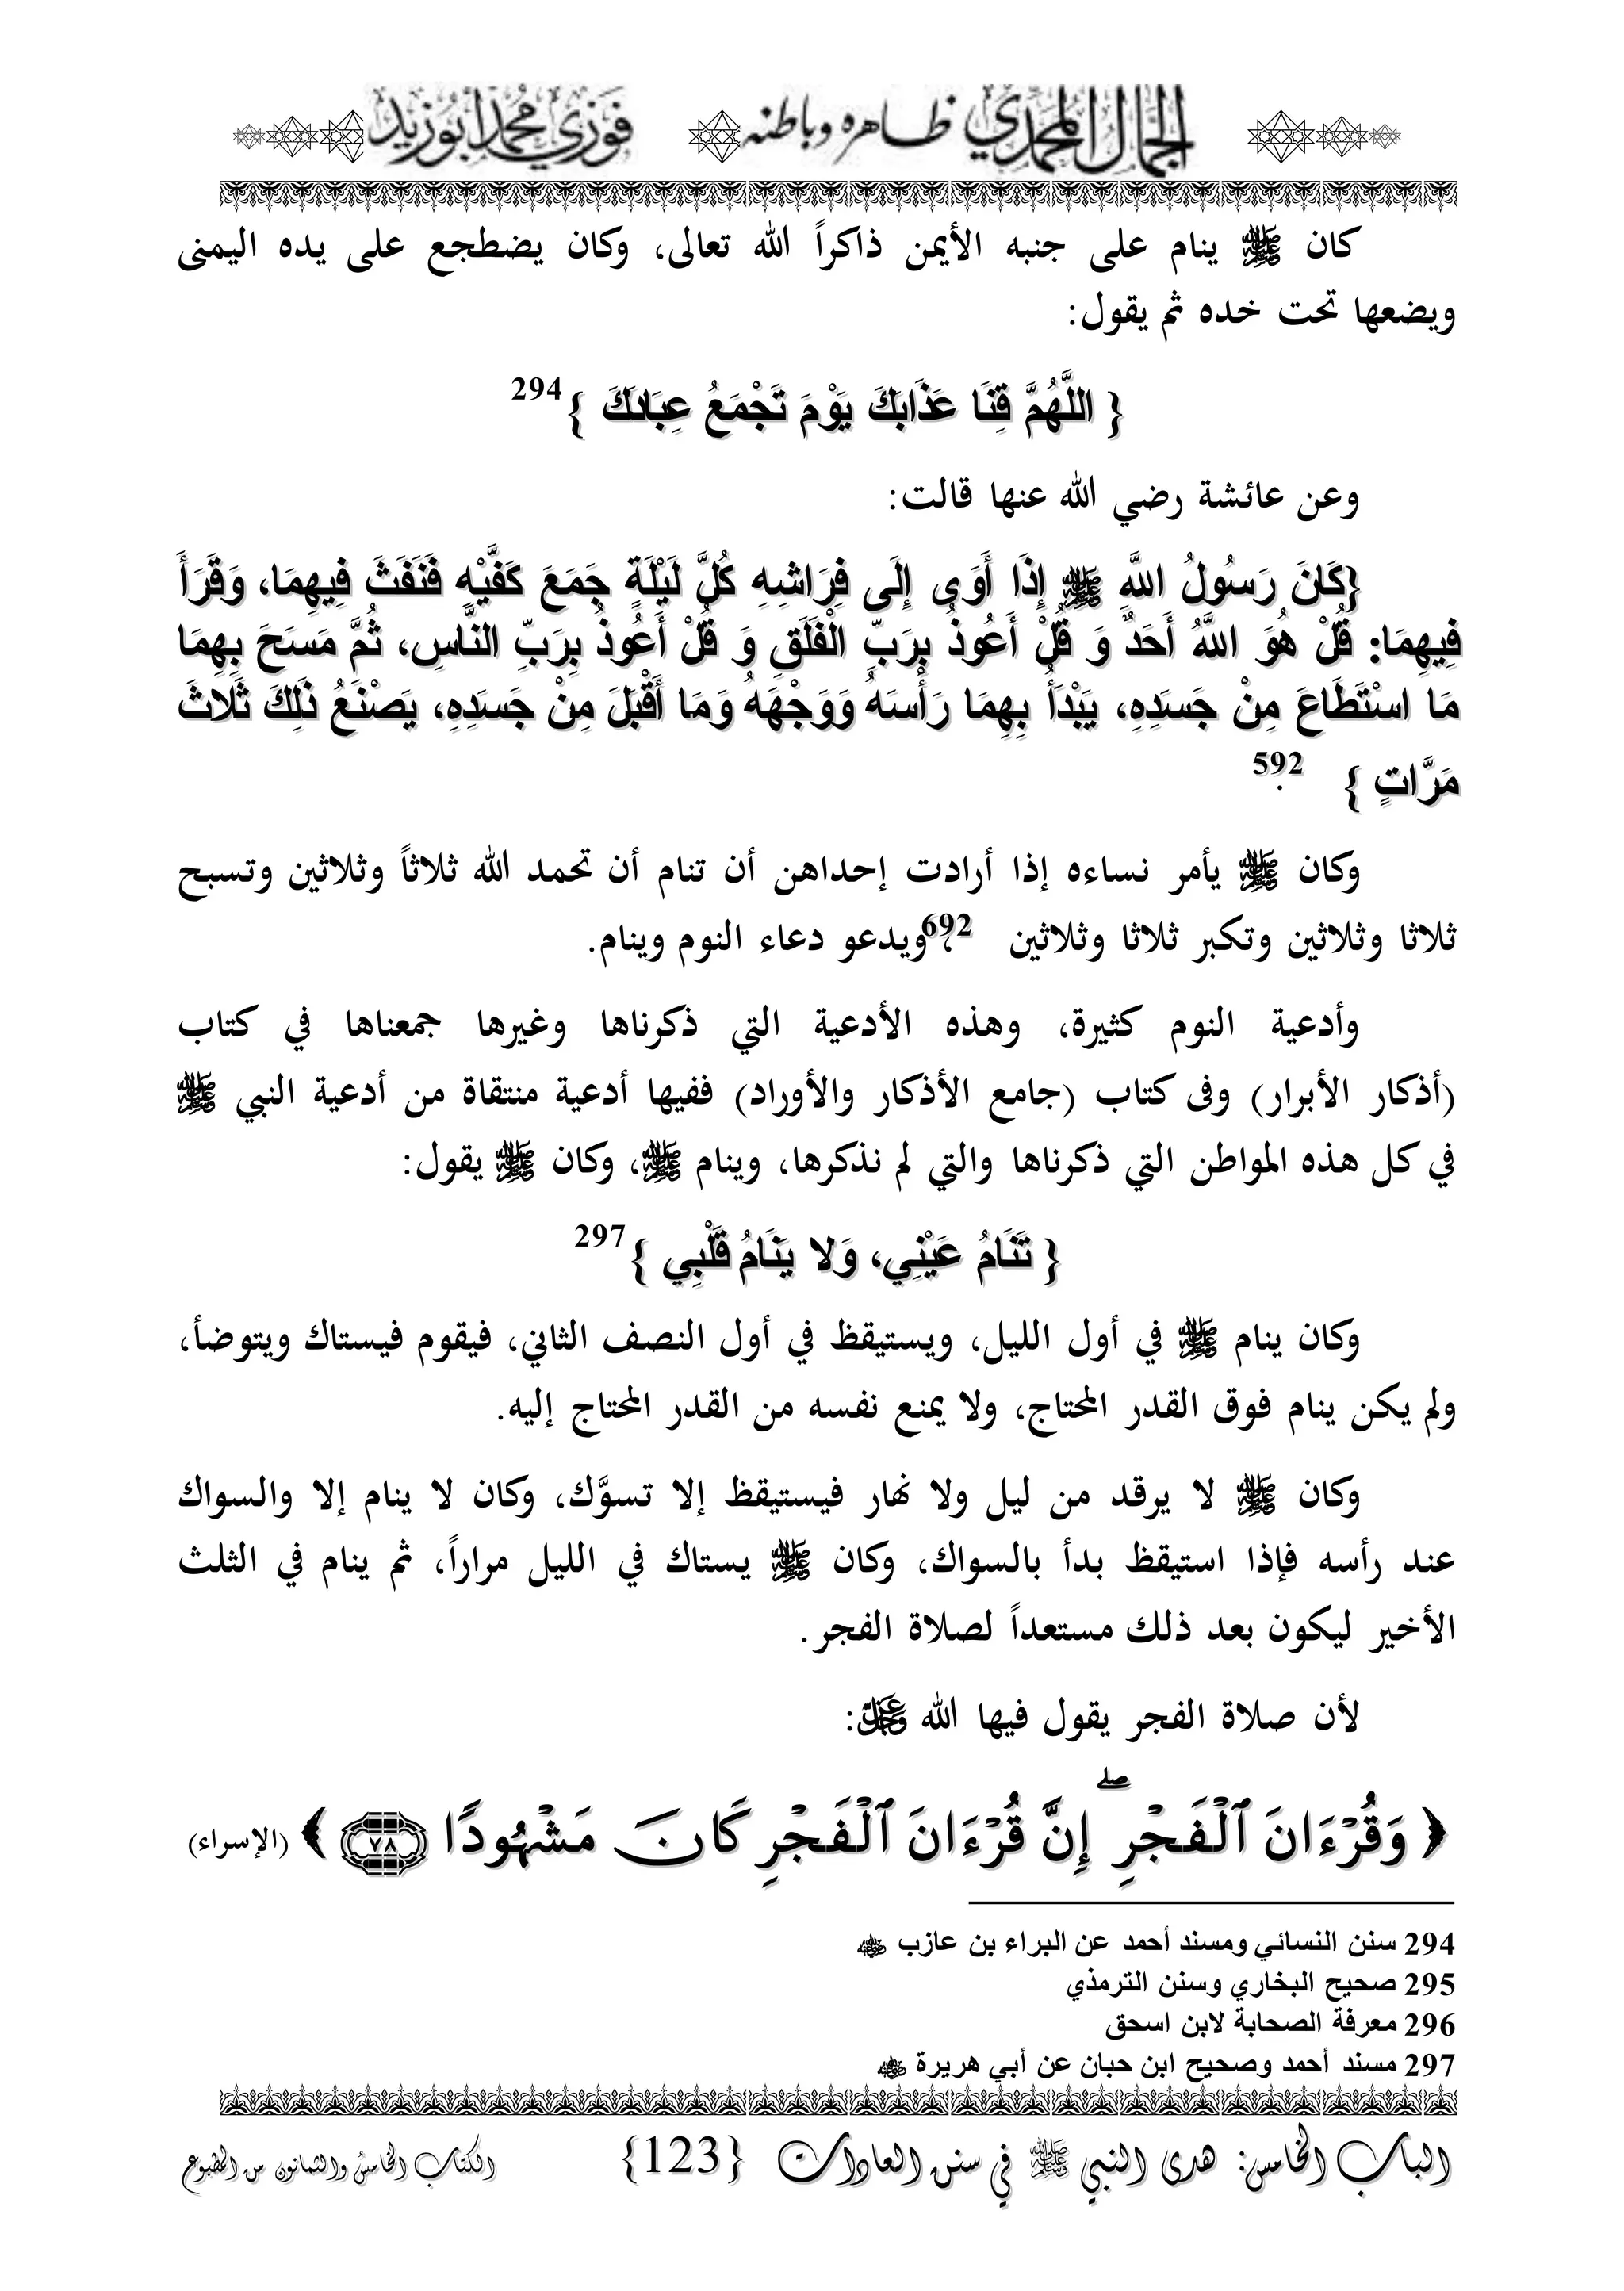 الجمال المحمدي ظاهره وباطنه فوزي محمد أبوزيد
كان ﷺ ينام على جنبه الأيمن ذاكراً الله تعالى، وكان يضطجع على يده اليمنى
ويضعها تحت خده ثم يقول:
{ اللَّهُمَّ قِنَا عَذَابَكَ يَوْمَ تَجْمَعُ عِبَادَكَ }294
وعن عائشة رضي الله عنها قالت:
{كَانَ رَسُولُ اللَّهِ ﷺ إِذَا أَوَى إِلَى فِرَاشِهِ كُلَّ لَيْلَةٍ جَمَعَ كَفَّيْهِ فَنَفَثَ فِيهِمَا، وَقَرَأَ
فِيهِمَا: قُلْ هُوَ اللَّهُ أَحَدٌ وَ قُلْ أَعُوذُ بِرَبِّ الْفَلَقِ وَ قُلْ أَعُوذُ بِرَبِّ النَّاسِ، ثُمَّ مَسَحَ بِهِمَا
مَا اسْتَطَاعَ مِنْ جَسَدِهِ، يَبْدَأُ بِهِمَا رَأْسَهُ وَوَجْهَهُ وَمَا أَقْبَلَ مِنْ جَسَدِهِ، يَصْنَعُ ذَلِكَ ثَلاثَ
مَرَّاتٍ } 592.
وكان ﷺ يأمر نساءه إذا أرادت إحداهن أن تنام أن تحمد الله ثلاثاً وثلاثين وتسبح
ثلاثا وثلاثين وتكبر ثلاثا وثلاثين 692، ويدعو دعاء النوم وينام.
وأدعية النوم كثيرة، وهذه الأدعية التي ذكرناها وغيرها جمعناها في كتاب
(أذكار الأبرار) وفى كتاب (جامع الأذكار والأوراد) ففيها أدعية منتقاة من أدعية النبي ﷺ
في كل هذه المواطن التي ذكرناها والتي لم نذكرها، وينام ﷺ، وكان ﷺ يقول:
{ تَنَامُ عَيْنِي، وَلا يَنَامُ قَلْبِي }297
وكان ينام ﷺ في أول الليل، ويستيقظ في أول النصف الثاني، فيقوم فيستاك ويتوضأ،
ولم يكن ينام فوق القدر المحتاج، ولا يمنع نفسه من القدر المحتاج إليه.
وكان ﷺ لا يرقد من ليل ولا نهار فيستيقظ إلا تسوَّك، وكان لا ينام إلا والسواك
عند رأسه فإذا استيقظ بدأ بالسواك، وكان ﷺ يستاك في الليل مراراً، ثم ينام في الثلث
الأخير ليكون بعد ذلك مستعداً لصلاة الفجر.
لأن صلاة الفجر يقول فيها الله عزوجل:
﴿ وَقُرْءَانَ ٱلْفَجْرِ ۖ إِنَّ قُرْءَانَ ٱلْفَجْرِ كَانَ مَشْهُودًا ٧٨ ﴾ (الإسراء)
294 سنن النسائي ومسند أحمد عن البراء بن عازب رضي الله عنه
295 صحيح البخاري وسنن الترمذي
296 معرفة الصحابة لابن اسحق
297 مسند أحمد وصحيح ابن حبان عن أبي هريرة رضي الله عنه
الباب الخامس: هدى النبي ﷺ في سنن العادات {123} الكتاب الخامس والثمانون من المطبوع